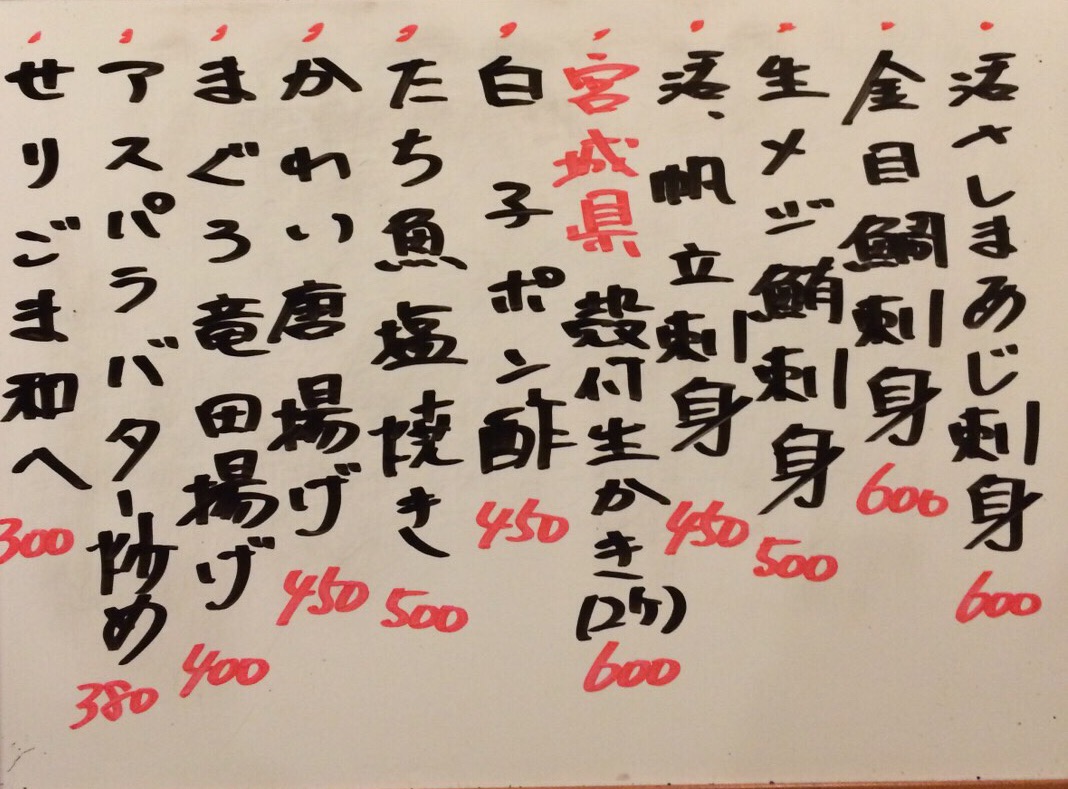 ・活〆しまあじ刺身 600
・金目鯛刺身 600
・生メジ鮪刺身 500
・活、帆立刺身 450
・宮城県 殻付生かき(2ケ) 600
・白子ポン酢 450
・たち魚塩焼き 500
・かれい唐揚げ 450
・まぐろ竜田揚げ 400
・アスパラバター炒め 380
・せりごま和へ 300